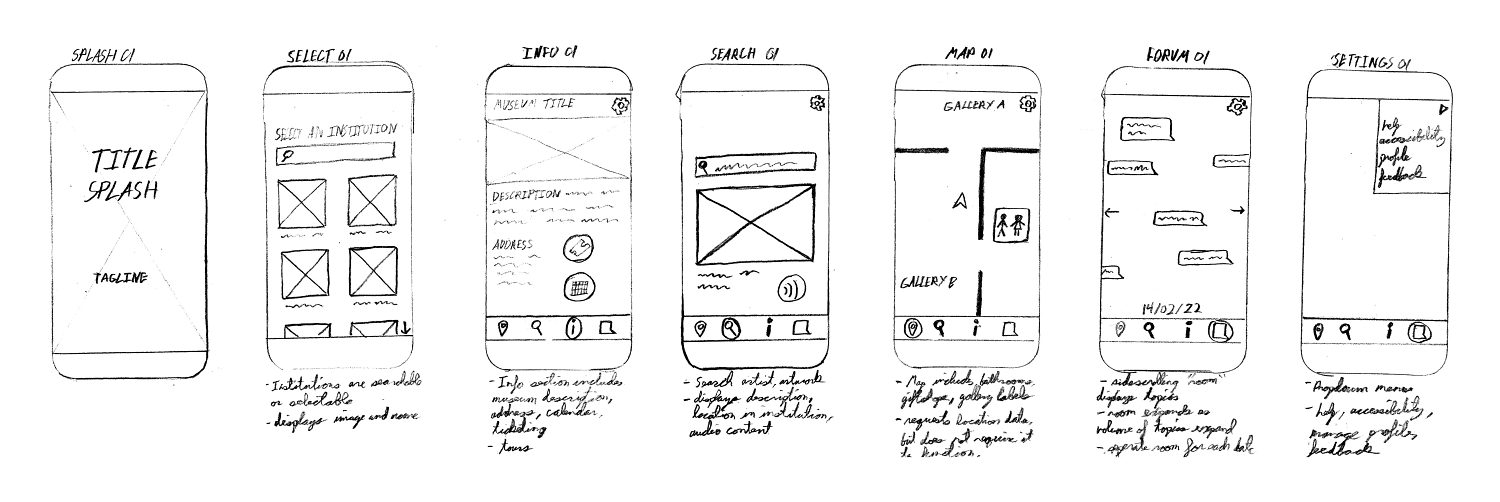 SPLASH 01
TITLE
SPLASH
TAGLINE
SELECT 01
SELECT AN INSTITUTION
- Institutions are searchable
or selectable
- displays image and name
INFO 01
MUSEUM TITLE
DESCRIPTION
ADDRESS
i
- Info section includes
museum description,
address, calendar,
ticketing
- tours
SEARCH 01
i
- Search artist, artwork
- displays description,
location in institution,
audio content
MAP 01
GALLERY A
GALLERY B
i
- Map includes bathrooms,
giftshops, gallery labels
- requests location data,
but does not require it
to function.
FORUM 01
14/02/22
i
- sidescrolling "room"
displays topics
- room expands as
volume of topics expand
- seperate room for each date
SETTINGS 01
help
accessibility
profile
feedback
i
- Dropdown menu
- help, accessibility,
manage profiles,
feedback